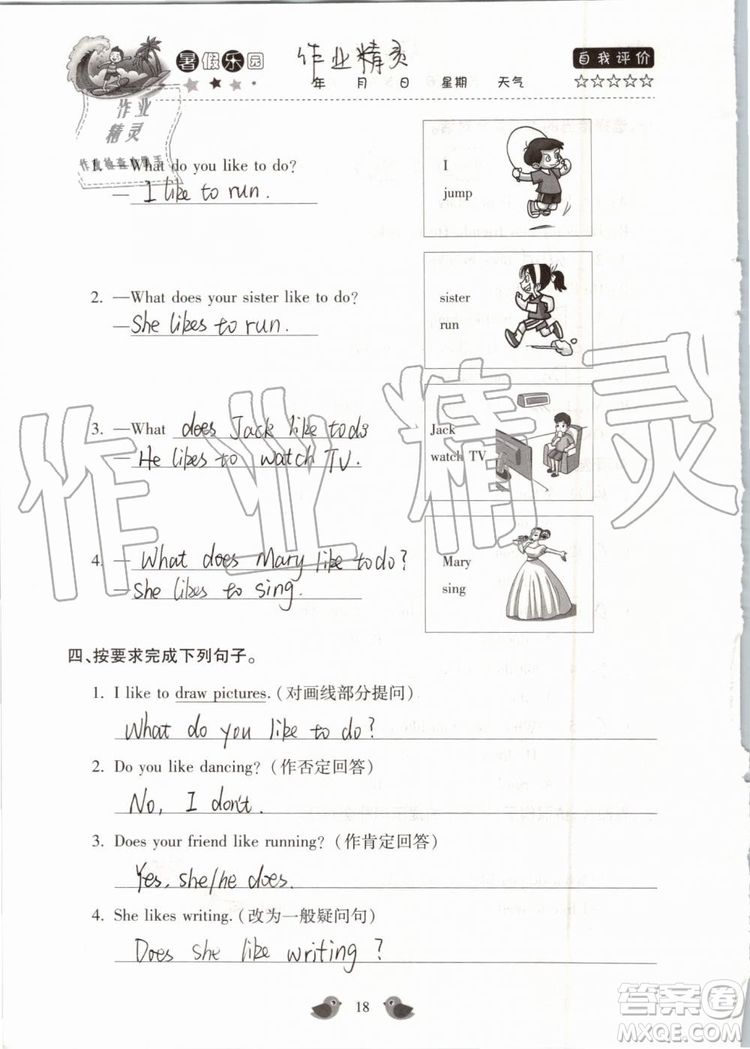 暑假乐园
作业精灵
年 月 日 星期 天气
自我评价
☆☆☆☆☆
作业
精灵
作业检查小帮手
1. —What do you like to do?
— I like to run.
I
jump
2. —What does your sister like to do?
—She likes to run.
sister
run
3. —What does Jack like to do
— He likes to watch TV.
Jack
watch TV
4. — What does Mary like to do?
—She likes to sing.
Mary
sing
作业精灵
四、按要求完成下列句子。
1. I like to draw pictures. (对画线部分提问)
What do you like to do?
2. Do you like dancing? (作否定回答)
No, I don't.
3. Does your friend like running? (作肯定回答)
Yes, she/he does.
4. She likes writing. (改为一般疑问句)
Does she like writing ?
18
答案圈
MXQE.COM